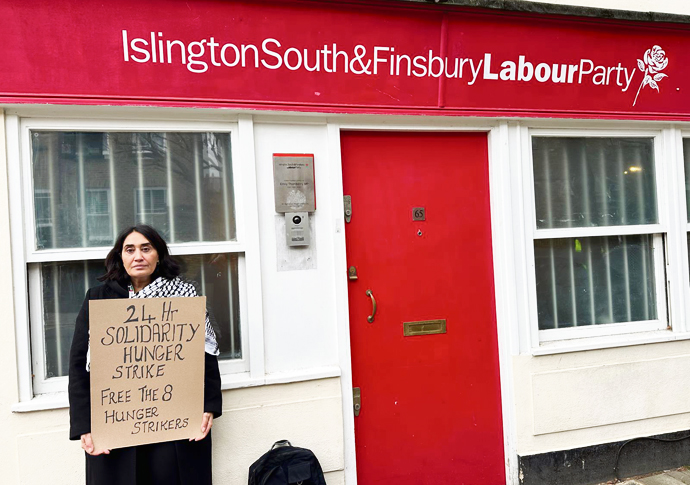 IslingtonSouth&FinsburyLabourParty
65
24 Hr
SOLIDARITY
HUNGER
STRIKE
FREE THE 8
HUNGER
STRIKERS